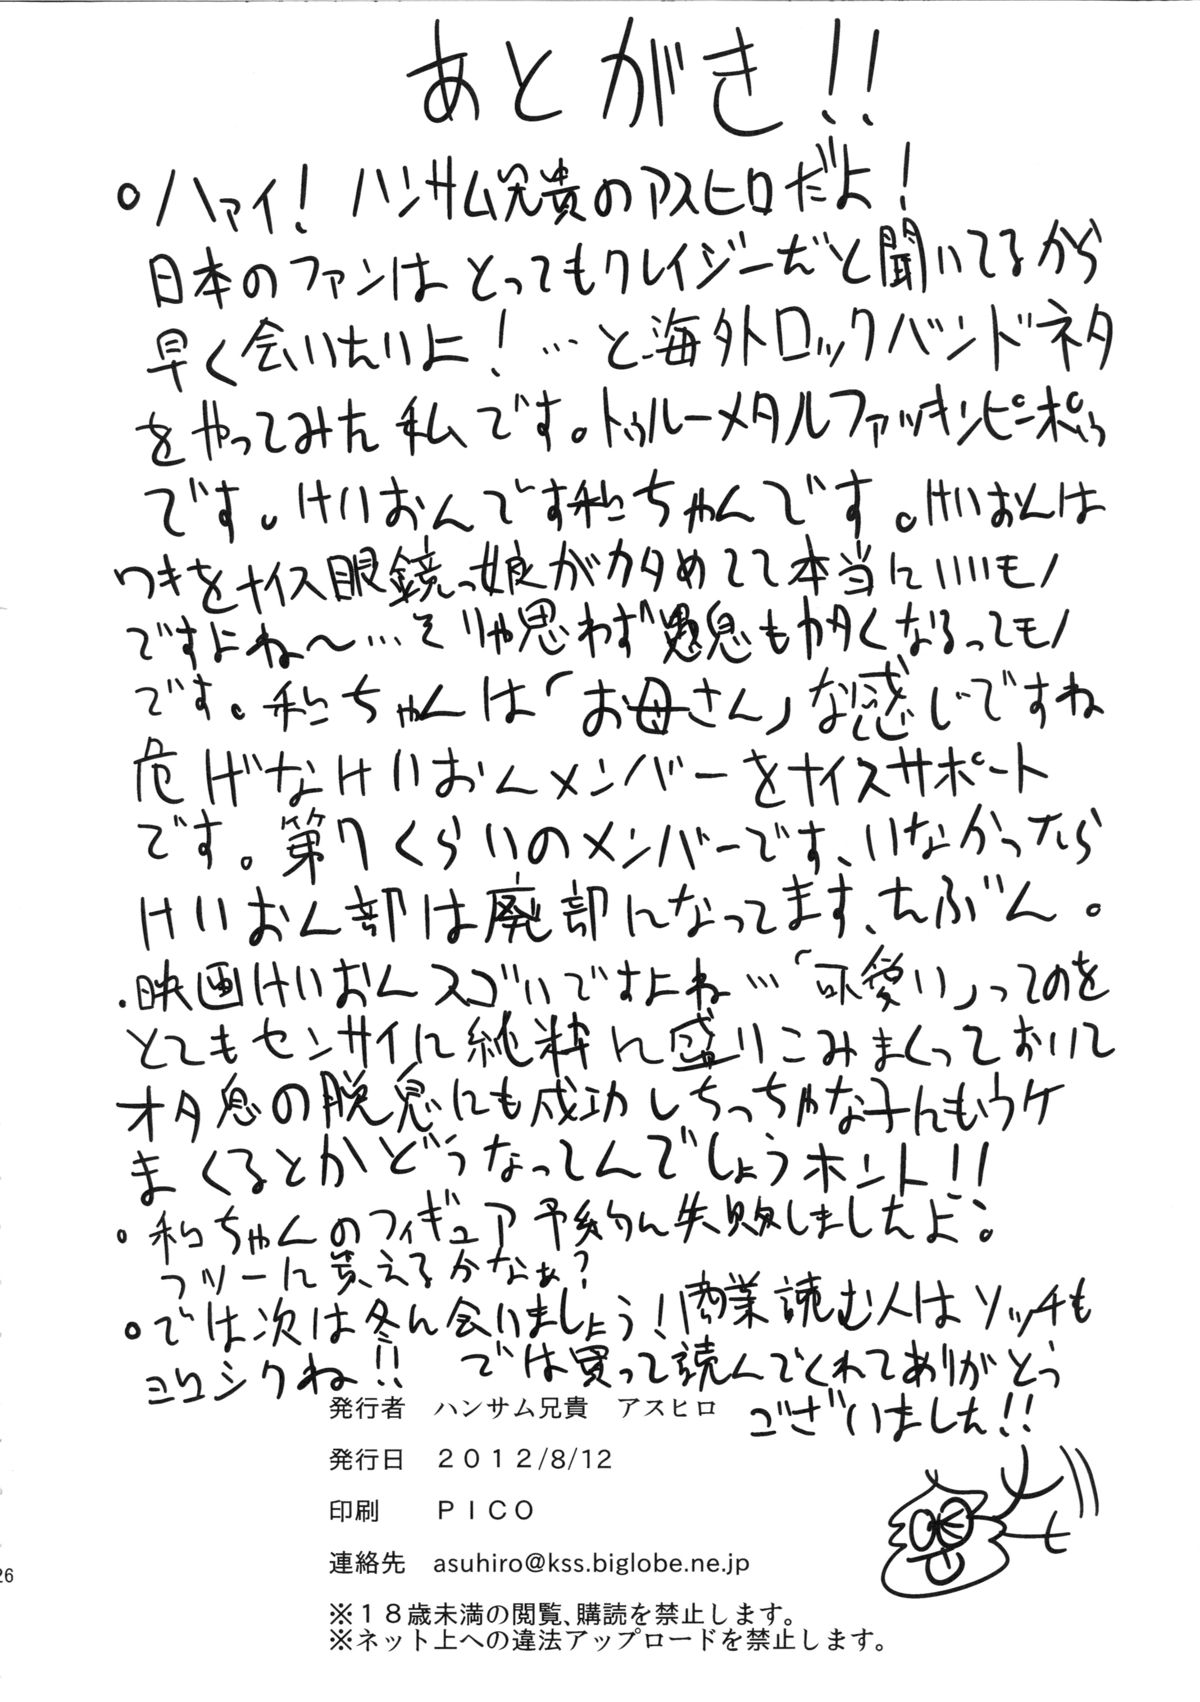 あとがき!!
○ハァイ! ハンサム兄貴のアスヒロだよ!
日本のファンはとってもクレイジーだと聞いてるから
早く会いたいよ!…と海外ロックバンドネタ
をやってみた私です。トゥルーメタルファッキンピンポぅ
です。けいおんです和ちゃんです。けいおんは
ワキをナイス眼鏡っ娘がカタめてて本当にいいモノ
ですよね〜…そりゃ思わず愚息もカタくなるってモノ
です。和ちゃんは「お母さん」な感じですね
危げなけいおんメンバーをナイスサポート
です。第7くらいのメンバーです、いなかったら
けいおん部は廃部になってます、たぶん。
・映画けいおんスゴいですよね…「可愛い」ってのを
とてもセンサイに純粋に盛りこみまくっておいて
オタ息の脱息にも成功しちっちゃな子にもウケ
まくるとかどうなってんでしょうホント!!
○和ちゃんのフィギュア予約に失敗しましたよ。
フツーに買えるかなぁ?
○では次は冬に会いましょう!商業読む人はソッチも
ヨロシクね!! では買って読んでくれてありがとう
ございました!!
発行者 ハンサム兄貴 アスヒロ
発行日 2012/8/12
印刷 PICO
連絡先 asuhiro@kss.biglobe.ne.jp
※18歳未満の閲覧、購読を禁止します。
※ネット上への違法アップロードを禁止します。
26